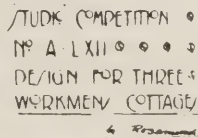 STUDIO COMPETITION
Nº A·LXII
DESIGN FOR THREE
WORKMENS COTTAGES
by Rosamund